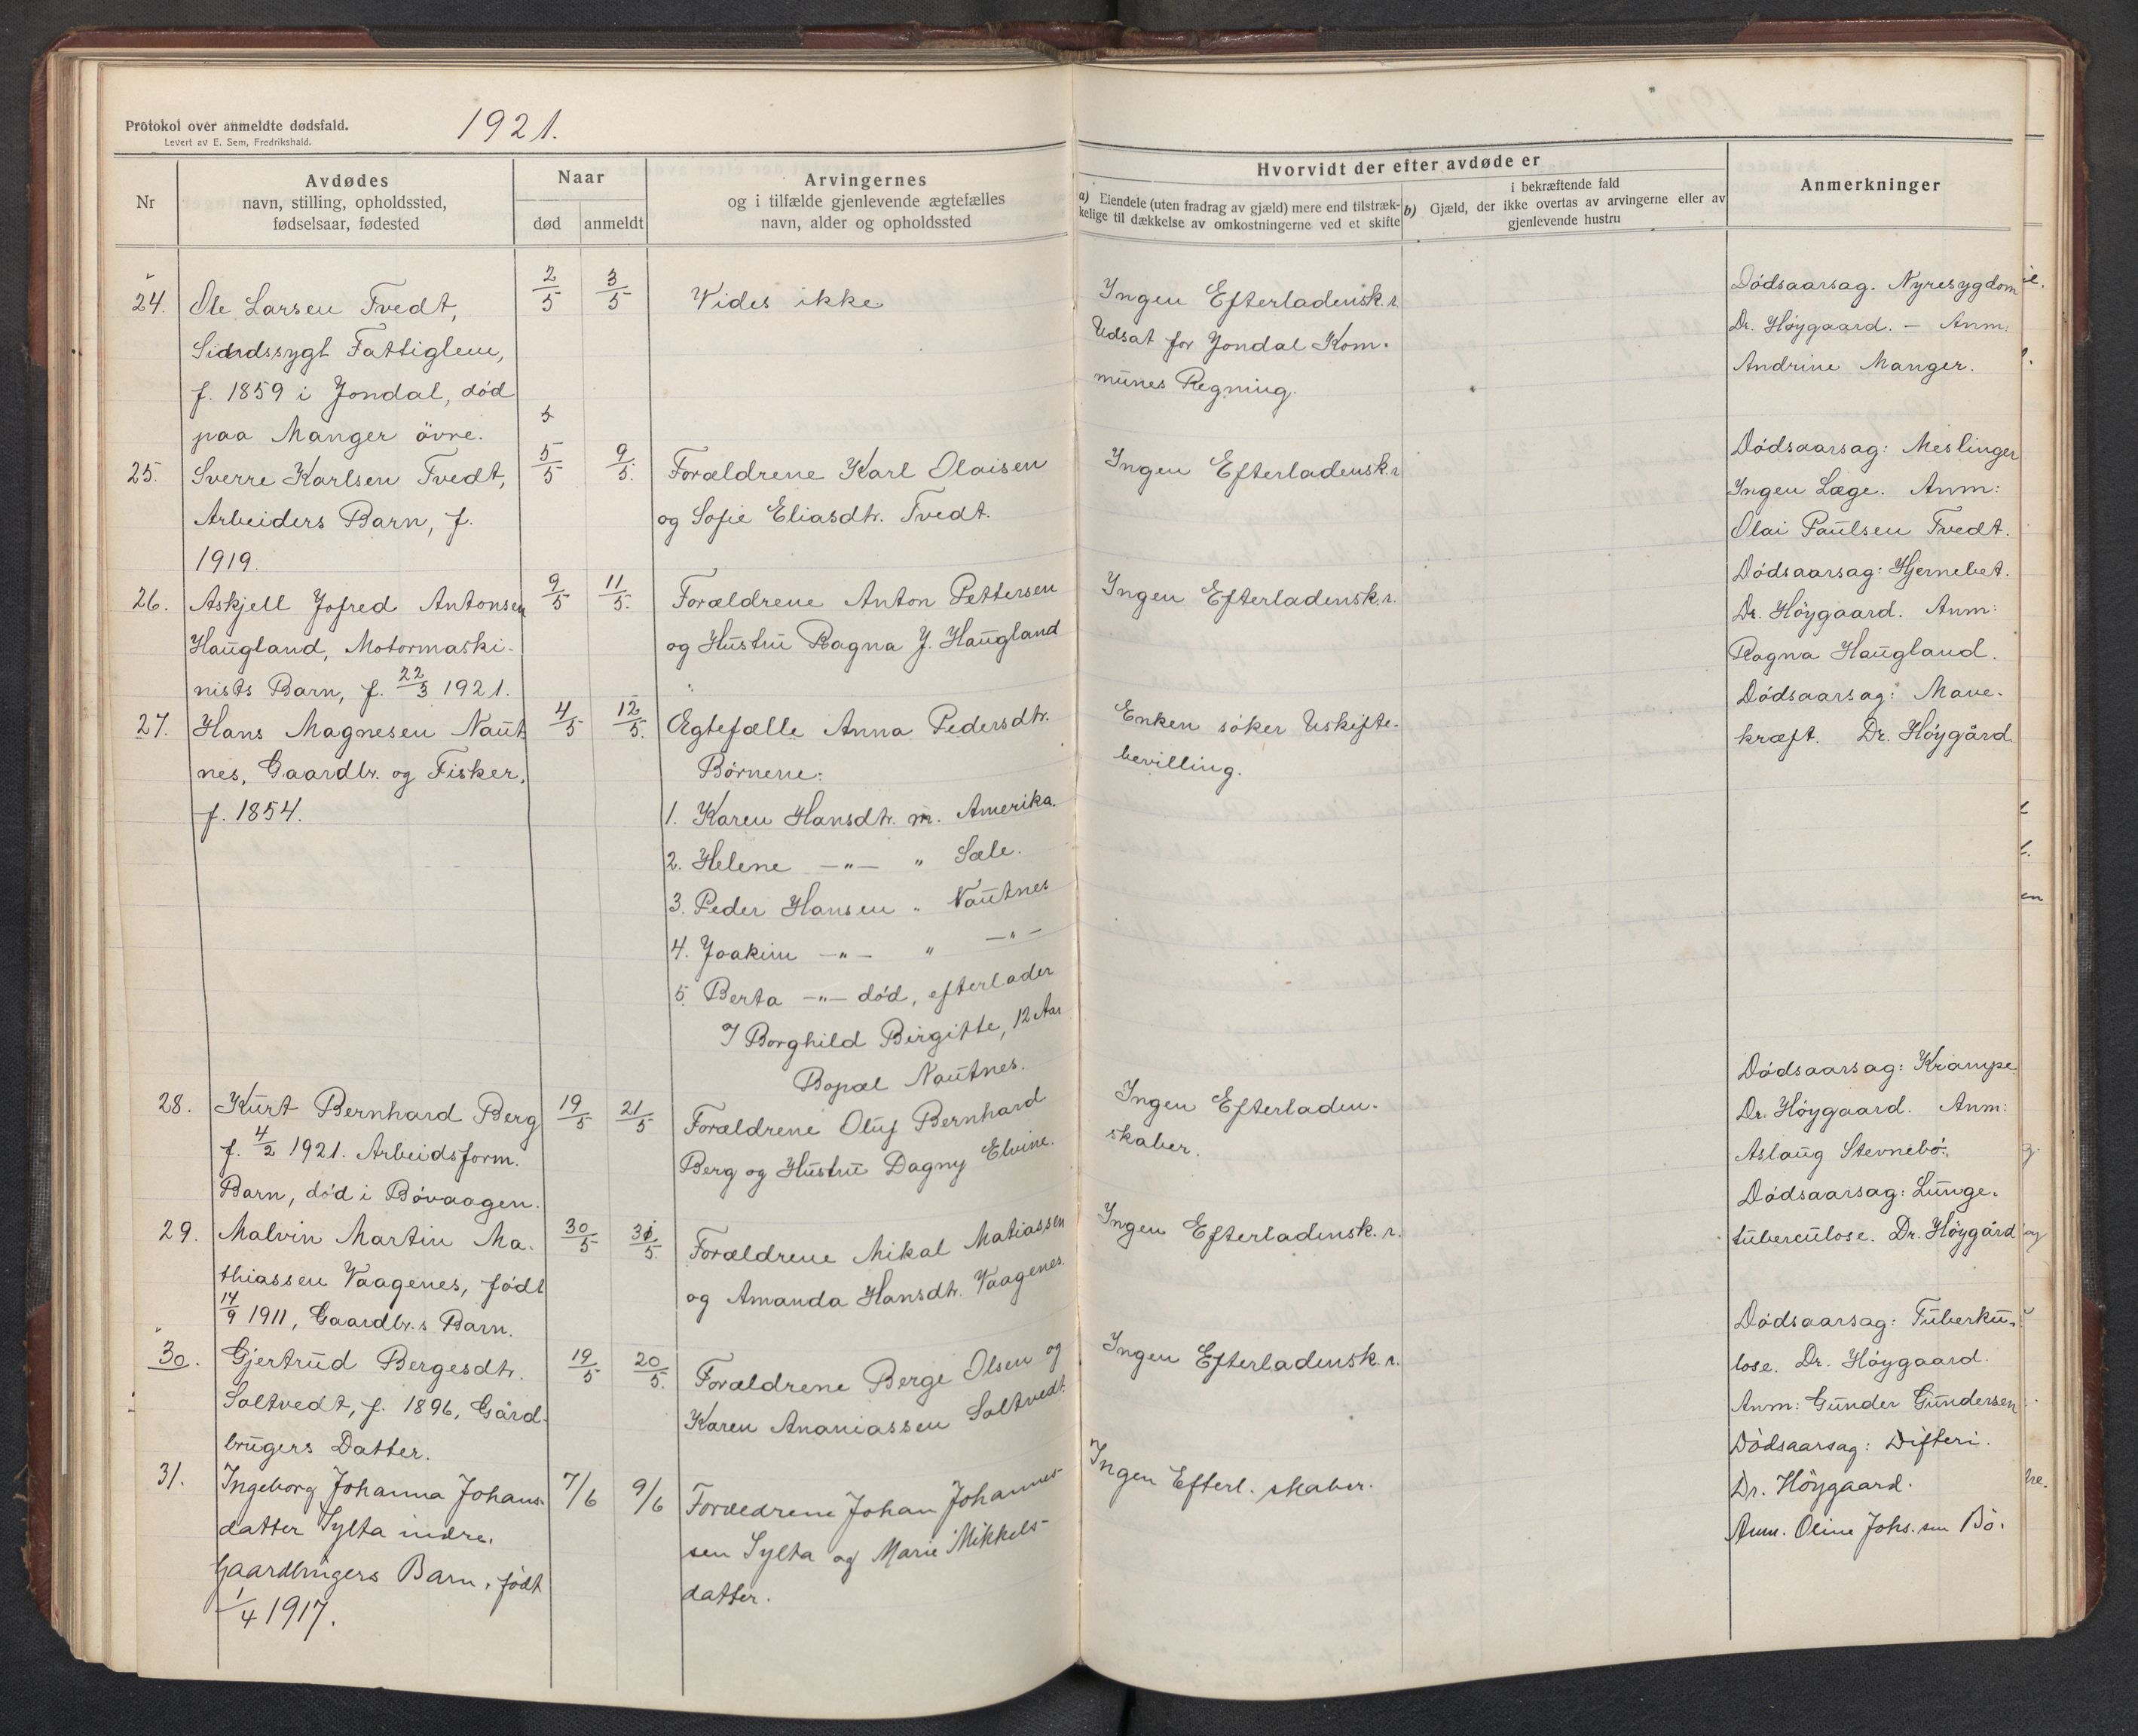 Protokol over anmeldte dødsfald.
Levert av E. Sem, Fredrikshald.
1921.
Nr
Avdødes
navn, stilling, opholdssted,
fødselsaar, fødested
Naar
død
anmeldt
Arvingernes
og i tilfælde gjenlevende ægtefælles
navn, alder og opholdssted
Hvorvidt der efter avdøde er
a) Eiendele (uten fradrag av gjæld) mere end tilstræk-
kelige til dækkelse av omkostningerne ved et skifte
i bekræftende fald
b) Gjæld, der ikke overtas av arvingerne eller av
gjenlevende hustru
Anmerkninger
24.
Ole Larsen Tvedt,
Sindssygt Fattiglem,
f. 1859 i Jondal, død
paa Manger övre.
2/5
3/5
Vides ikke
Ingen Efterladensk.r
Udsat for Jondal Kom-
munes Regning.
Dödsaarsag. Nyresygdom
Dr. Höygaard. — Anm:
Andrine Manger.
25.
Sverre Karlsen Tvedt,
Arbeiders Barn, f.
1919.
5
5/5
9/5.
Forældrene Karl Olaisen
og Sofie Eliasdtr. Tvedt.
Ingen Efterladensk.r
Dödsaarsag: Meslinger
Ingen Læge. Anm:
Olai Paulsen Tvedt.
26.
Askjell Jofred Antonsen
Haugland, Motormaski-
nists Barn, f. 22/3 1921.
9/5
11/5.
Forældrene Anton Pettersen
og Hustru Ragna J. Haugland
Ingen Efterladensk.r.
Dödsaarsag: Hjernebet.
Dr. Höygaard. Anm:
Ragna Haugland.
27.
Hans Magnesen Naut
nes, Gaardbr. og Fisker,
f. 1854.
4/5
12/5.
Ægtefælle Anna Pedersdtr.
Börnene:
1. Karen Hansdtr. m. Amerika.
2. Helene —"— " Sæle.
3. Peder Hansen " Nautnes
4. Joakim —"— " —"—
5. Berta —"— död, efterlader
I Borghild Birgitte, 12 Aar
Bopæl Nautnes.
Enken söker Uskifte-
bevilling.
Dödsaarsag: Mave-
kræft. Dr. Höygård
28.
Kurt Bernhard Berg
f. 4/2 1921. Arbeidsform.
Barn, död i Bövaagen.
19/5
21/5
Forældrene Oluf Bernhard
Berg og Hustru Dagny Elvine.
Ingen Efterladen-
skaber.
Dödsaarsag: Krampe.
Dr. Höygaard. Anm:
Aslaug Stevnebö.
29.
Malvin Martin Ma-
thiassen Vaagenes, född
14/9 1911, Gaardbr.s Barn.
30/5
31/5.
Forældrene Mikal Matiassen
og Amanda Hansdtr. Vaagenes.
Ingen Efterladensk.r.
Dödsaarsag: Lunge-
tuberculose. Dr. Höygård
30.
Gjertrud Bergesdtr.
Soltvedt, f. 1896, Gård-
brugers Datter.
19/5
20/5.
Forældrene Berge Olsen og
Karen Ananiassen Soltvedt.
Ingen Efterladensk.r.
Dödsaarsag: Tuberku-
lose. Dr. Höygaard.
Anm: Gunder Gundersen
31.
Ingeborg Johanna Johans-
datter Sylta indre.
Gaardbrugers Barn, födt
1/4 1917.
7/6
9/6
Foreldrene Johan Johannes-
sen Sylta og Marie Mikkels-
datter.
Ingen Efterl. skaber.
Dödsaarsag: Difteri.
Dr. Höygaard.
Anm. Oline Johs.sen Bö.